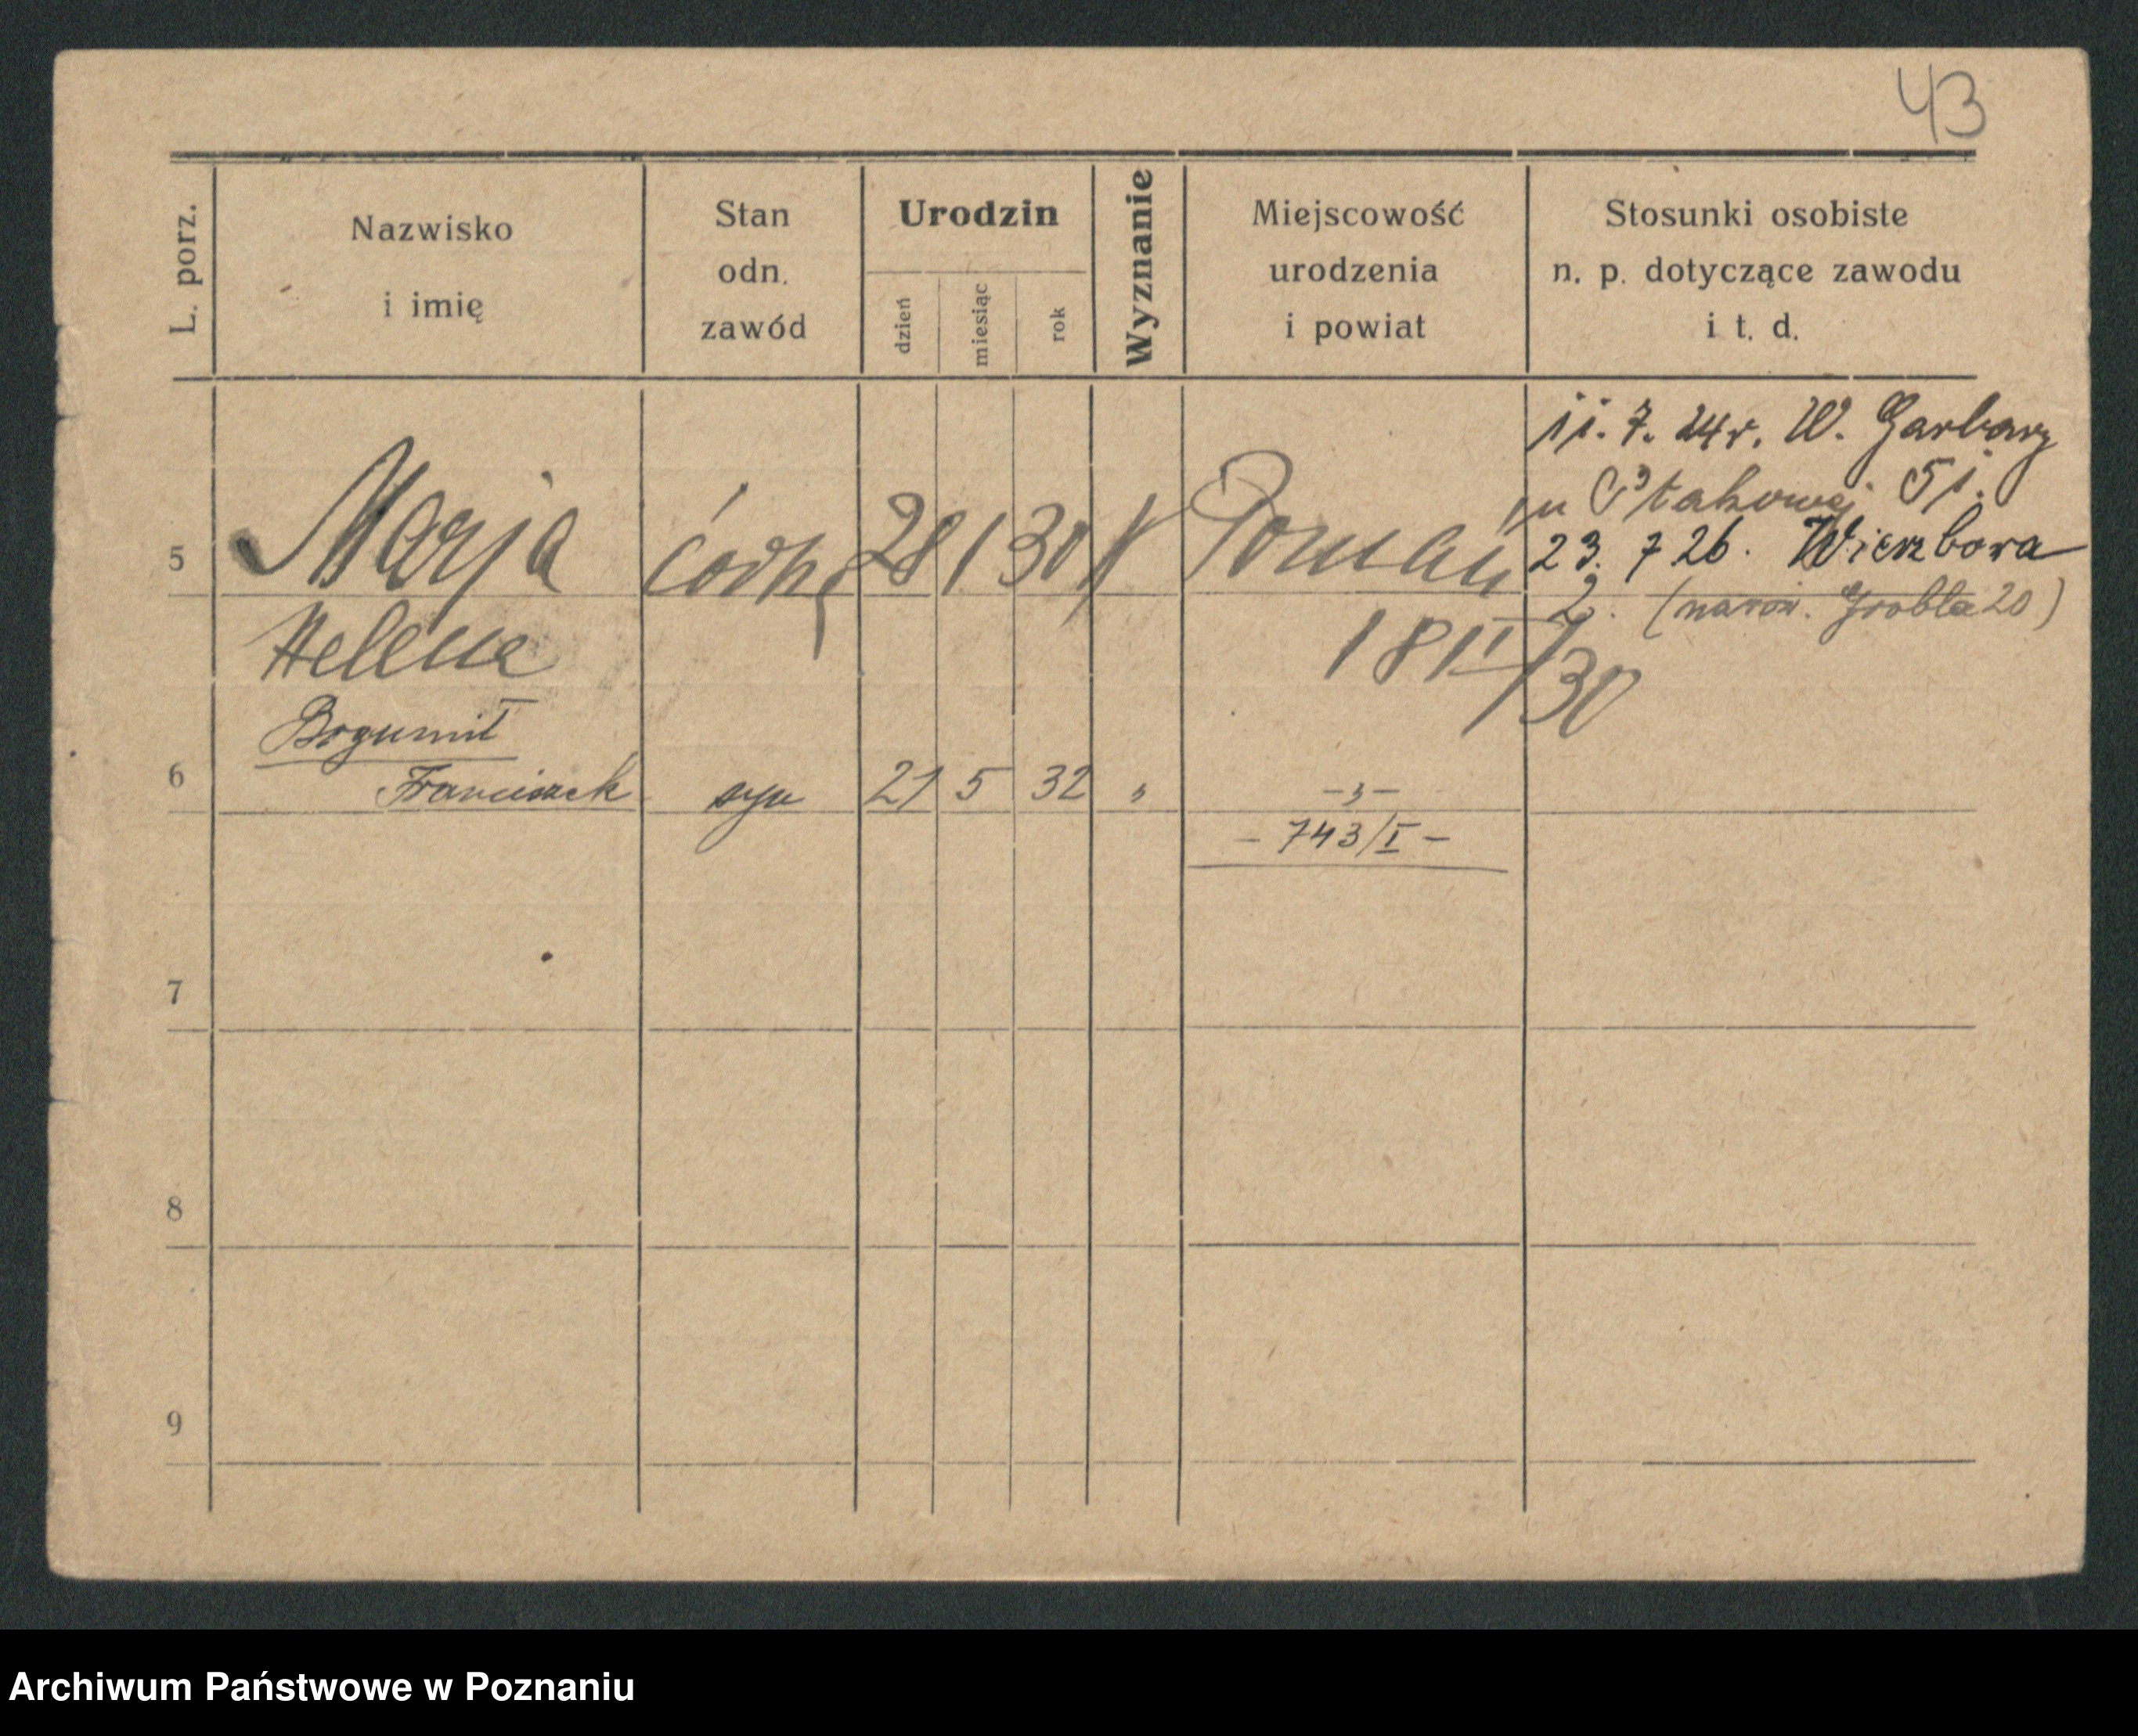 43
L. porz.
Nazwisko
i imię
Stan
odn.
zawód
Urodzin
dzień
miesiąc
rok
Wyznanie
Miejscowość
urodzenia
i powiat
Stosunki osobiste
n. p. dotyczące zawodu
i t. d.
5 Marja córka 28 1 30 K Poznań
Helena
18 II/30
11. 7. 24 r. W. Garbary
u Ptakowej 51.
23. 7 26. Wierzbowa
2. Grobla 20)
Bogumił
6 Franciszek syn 21 5 32 " -"-
- 743/I -
7
8
9
Archiwum Państwowe w Poznaniu